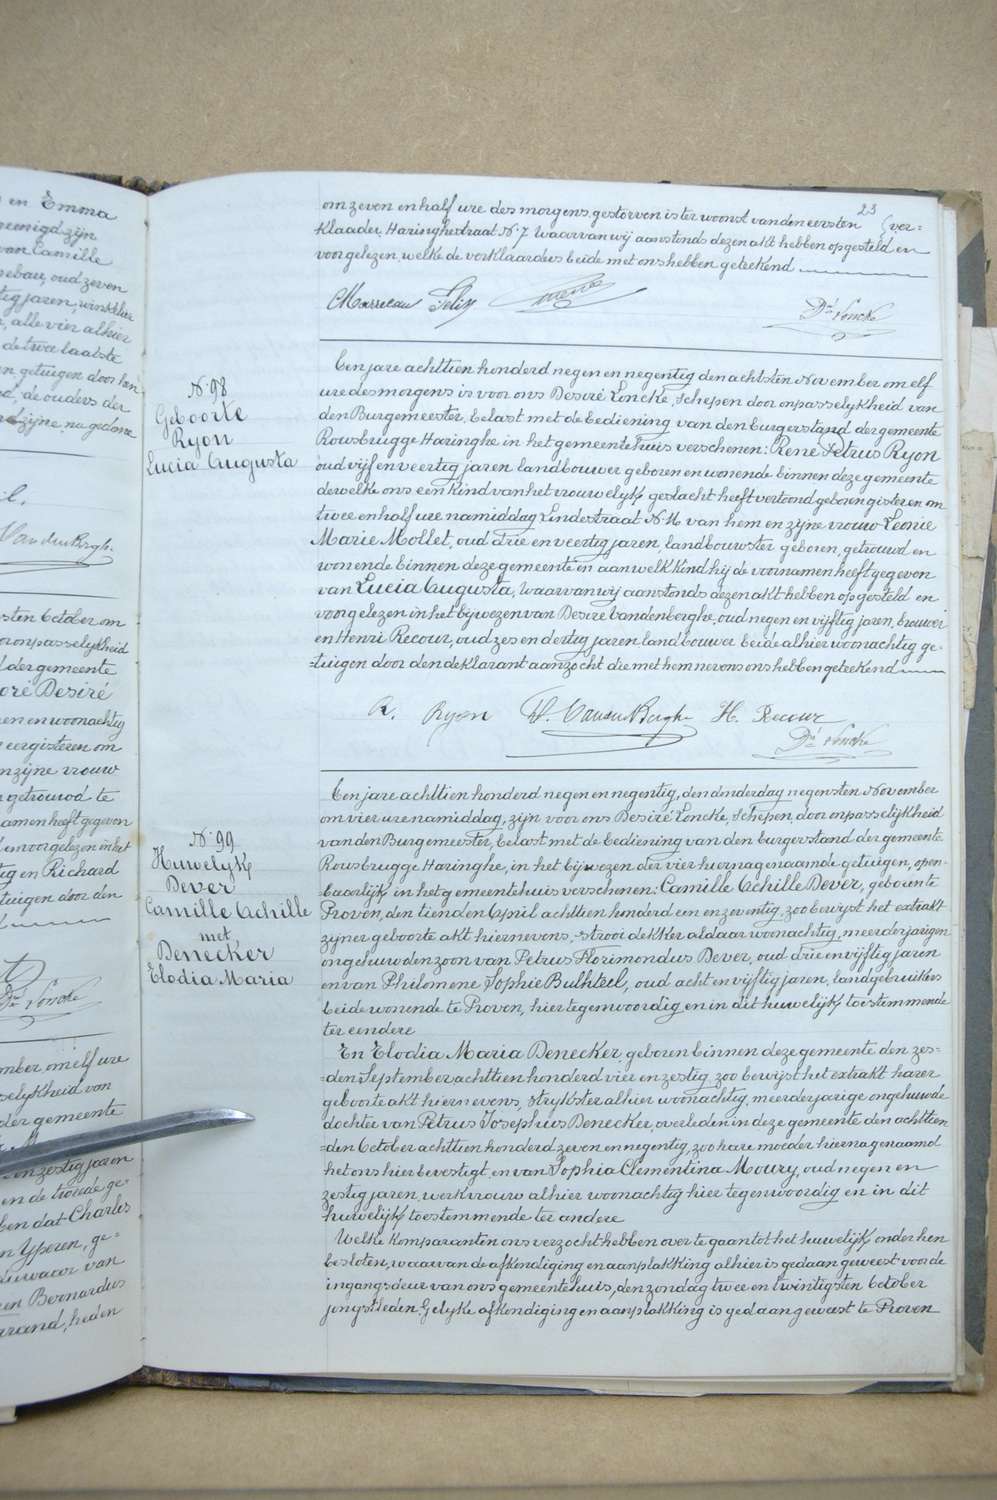 en Emma
van Camille
oud zeven
alle vier alhier
de twee laatste
getuigen door
de ouders der
October om
der gemeente
Desiré
eergisteren om
zijne vrouw
getrouwd te
heeft gegeven
en Richard
getuigen door den
Ds Loncke
om elf ure
der gemeente
zestig jaren
dat Charles
Yperen, ge-
van
Bernardus
heden
23
om zeven en half ure des morgens, gestorven is ter woonst van den eersten (ver-
klaader, Haringhestraat N. 7 Waarvan wij aanstonds dezen akt hebben opgesteld en
voorgelezen, welke de verklaarders beide met ons hebben geteekend
Ds Loncke
N. 98
Geboorte
Ryon
Lucia Augusta
Een jare achttien honderd negen en negentig den achtsten November om elf
ure des morgens is voor ons Desiré Loncke, schepen door onpasselijkheid van
den Burgemeester, belast met de bediening van den burgerstand der gemeente
Rousbrugge Haringhe in het gemeentehuis verschenen: René Petrus Ryon
oud vijf en veertig jaren landbouwer geboren en wonende binnen deze gemeente
dewelke ons een kind van het vrouwelijk geslacht heeft vertoond geboren gisteren om
twee en half ure namiddag Lindestraat N. 11 van hem en zijne vrouw Leonie
Marie Mollet, oud drie en veertig jaren, landbouwster geboren, getrouwd en
wonende binnen deze gemeente en aan welk kind hij de voornamen heeft gegeven
van Lucia Augusta, Waarvan wij aanstonds dezen akt hebben opgesteld en
voorgelezen in het bijwezen van Desiré Vandenberghe, oud negen en vijftig jaren, brouwer
en Henri Recour, oud zes en dertig jaren, landbouwer beide alhier woonachtig ge-
=tuigen door den deklarant aanzocht die met hem nevens ons hebben geteekend
R. Ryon D. Vandenberghe H. Recour
Ds Loncke
N. 99
Huwelijk
Dever
Camille Achille
met
Denecker
Elodia Maria
Een jare achttien honderd negen en negentig, den donderdag negensten November
om vier ure namiddag, zijn voor ons Desiré Loncke, schepen, door onpasselijkheid
van den Burgemeester, belast met de bediening van den burgerstand der gemeente
Rousbrugge Haringhe, in het bijwezen der vier hiernagenaamde getuigen, open-
=baarlijk in het gemeentehuis verschenen: Camille Achille Dever, geboren te
Proven, den tienden April achttien honderd een en zeventig, zoo bewijst het extrakt
zijner geboorte akt hiernevens, strooidekker aldaar woonachtig, meerderjarigen
ongehuwden zoon van Petrus Florimondus Dever, oud drie en vijftig jaren
en van Philomene Sophie Bulkteel, oud acht en vijftig jaren, landgebruikers
beide wonende te Proven, hier tegenwoordig en in dit huwelijk toestemmende
ter eendere
En Elodia Maria Denecker, geboren binnen deze gemeente den zes-
=den September achttien honderd vier en zestig zoo bewijst het extrakt harer
geboorte akt hiernevens, strijkster alhier woonachtig, meerderjarige ongehuwde
dochter van Petrus Josephus Denecker, overleden in deze gemeente den achttien-
=den October achttien honderd zeven en negentig, zoo hare moeder hiernagenaamd
het ons hier bevestigt en van Sophia Clementina Moury, oud negen en
zestig jaren, werkvrouw alhier woonachtig hier tegenwoordig en in dit
huwelijk toestemmende ter andere
Welke komparanten ons verzocht hebben over te gaan tot het huwelijk onder hen
besloten, waarvan de afkondiging en aanplakking alhier is gedaan geweest voor de
ingangsdeur van ons gemeentehuis, den zondag twee en twintigsten October
jongstleden, Gelijke afkondiging en aanplakking is gedaan geweest te Proven